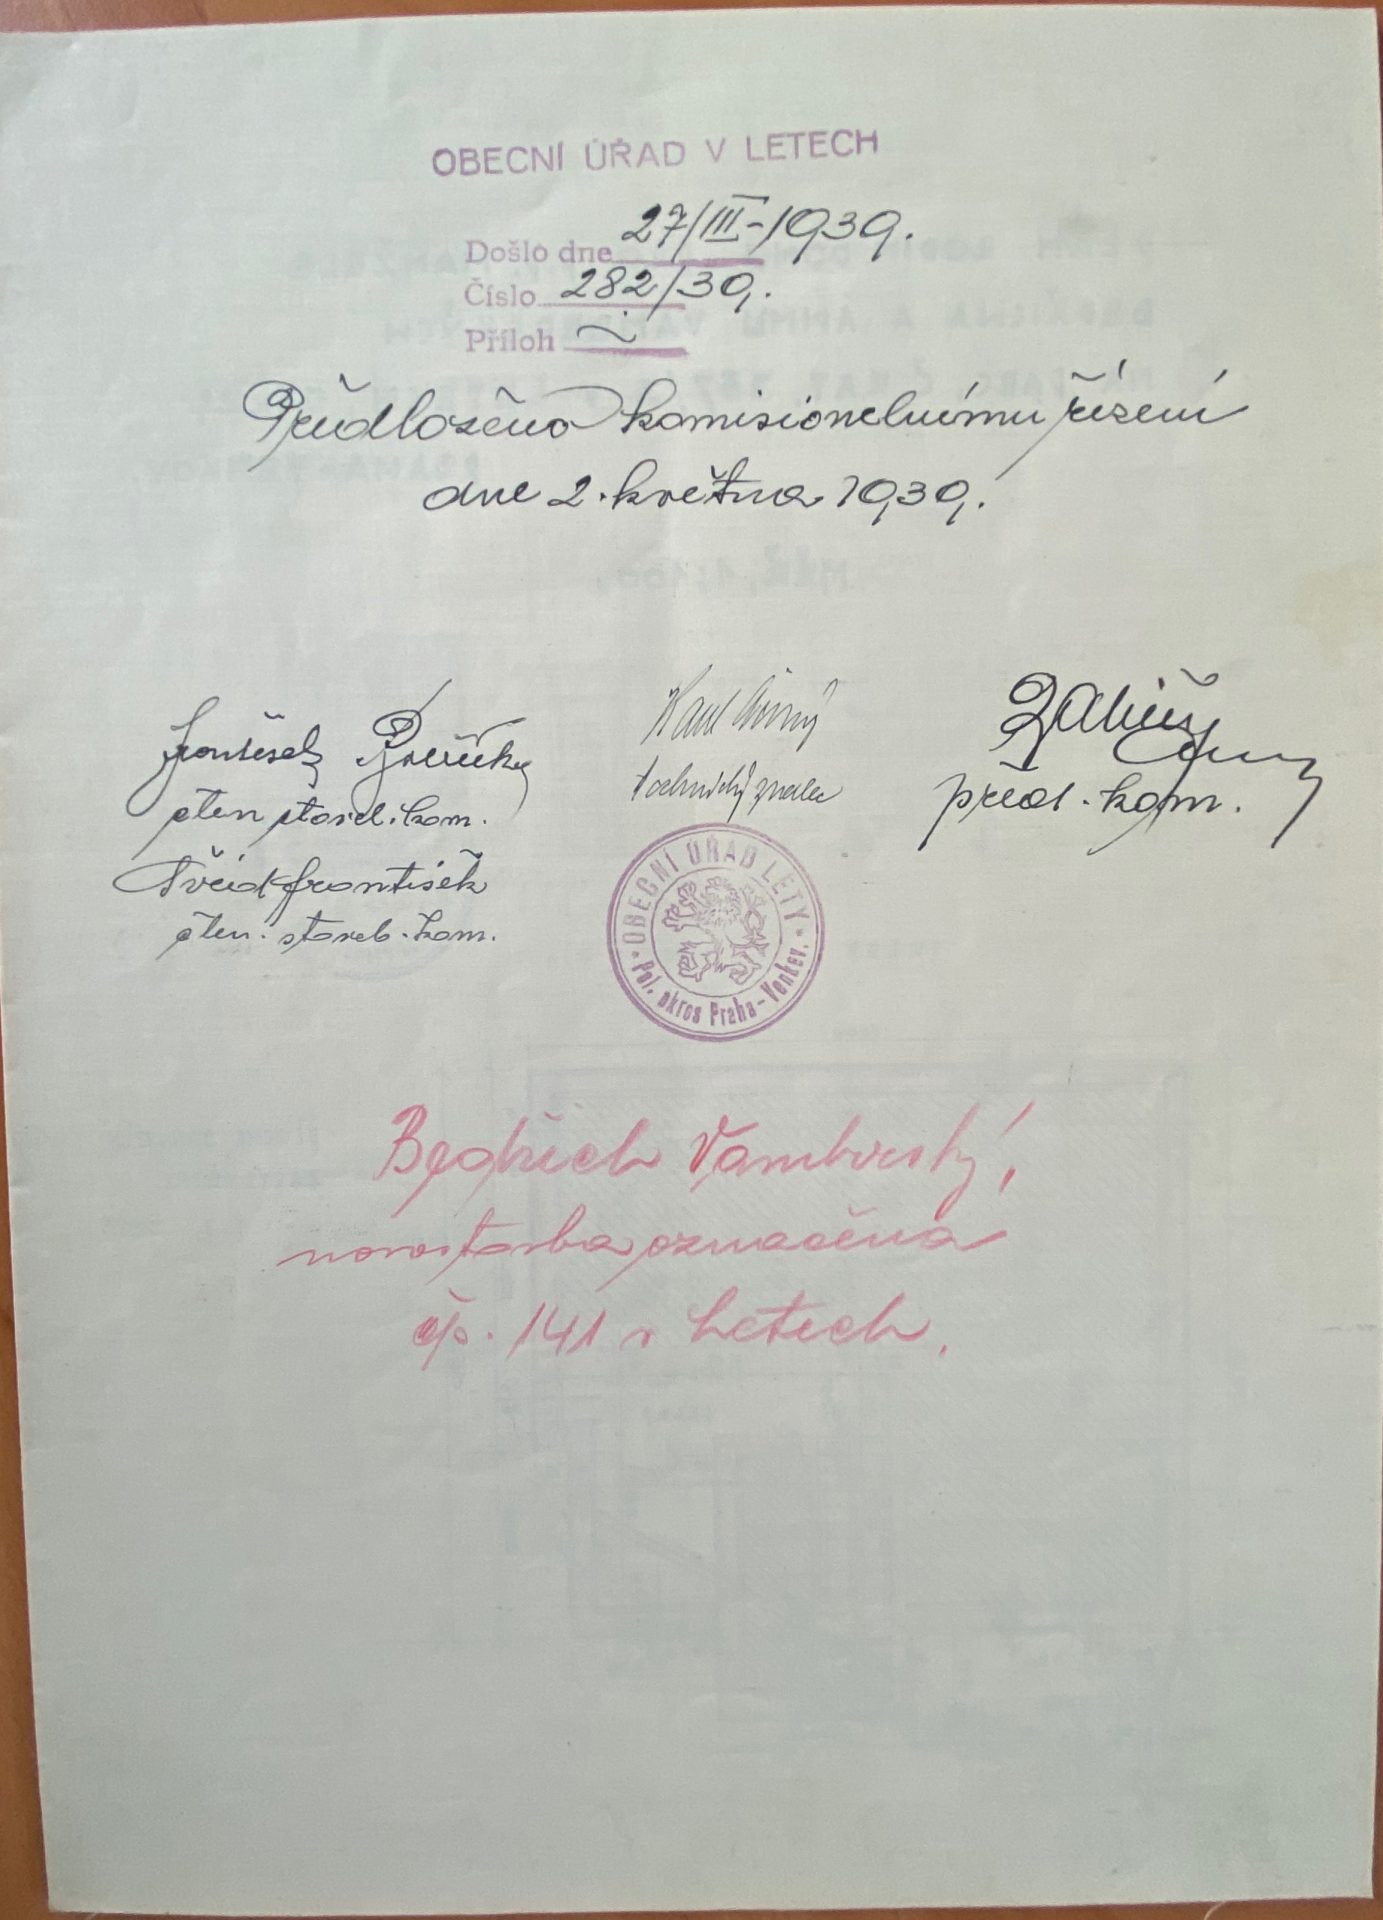 OBECNÍ ÚŘAD V LETECH
Došlo dne 27/III-1939.
Číslo 282/39.
Příloh
Předloženo komisionelnímu řízení
dne 2. května 1939.
František
člen staveb. kom.
František
člen. staveb. kom.
Karel Černý
technický znalec
před. kom.
OBECNÍ ÚŘAD LETY
Pol. okres Praha-Venkov.
Bedřich Vamberský,
novostavba označena
čp. 141 v Letech.